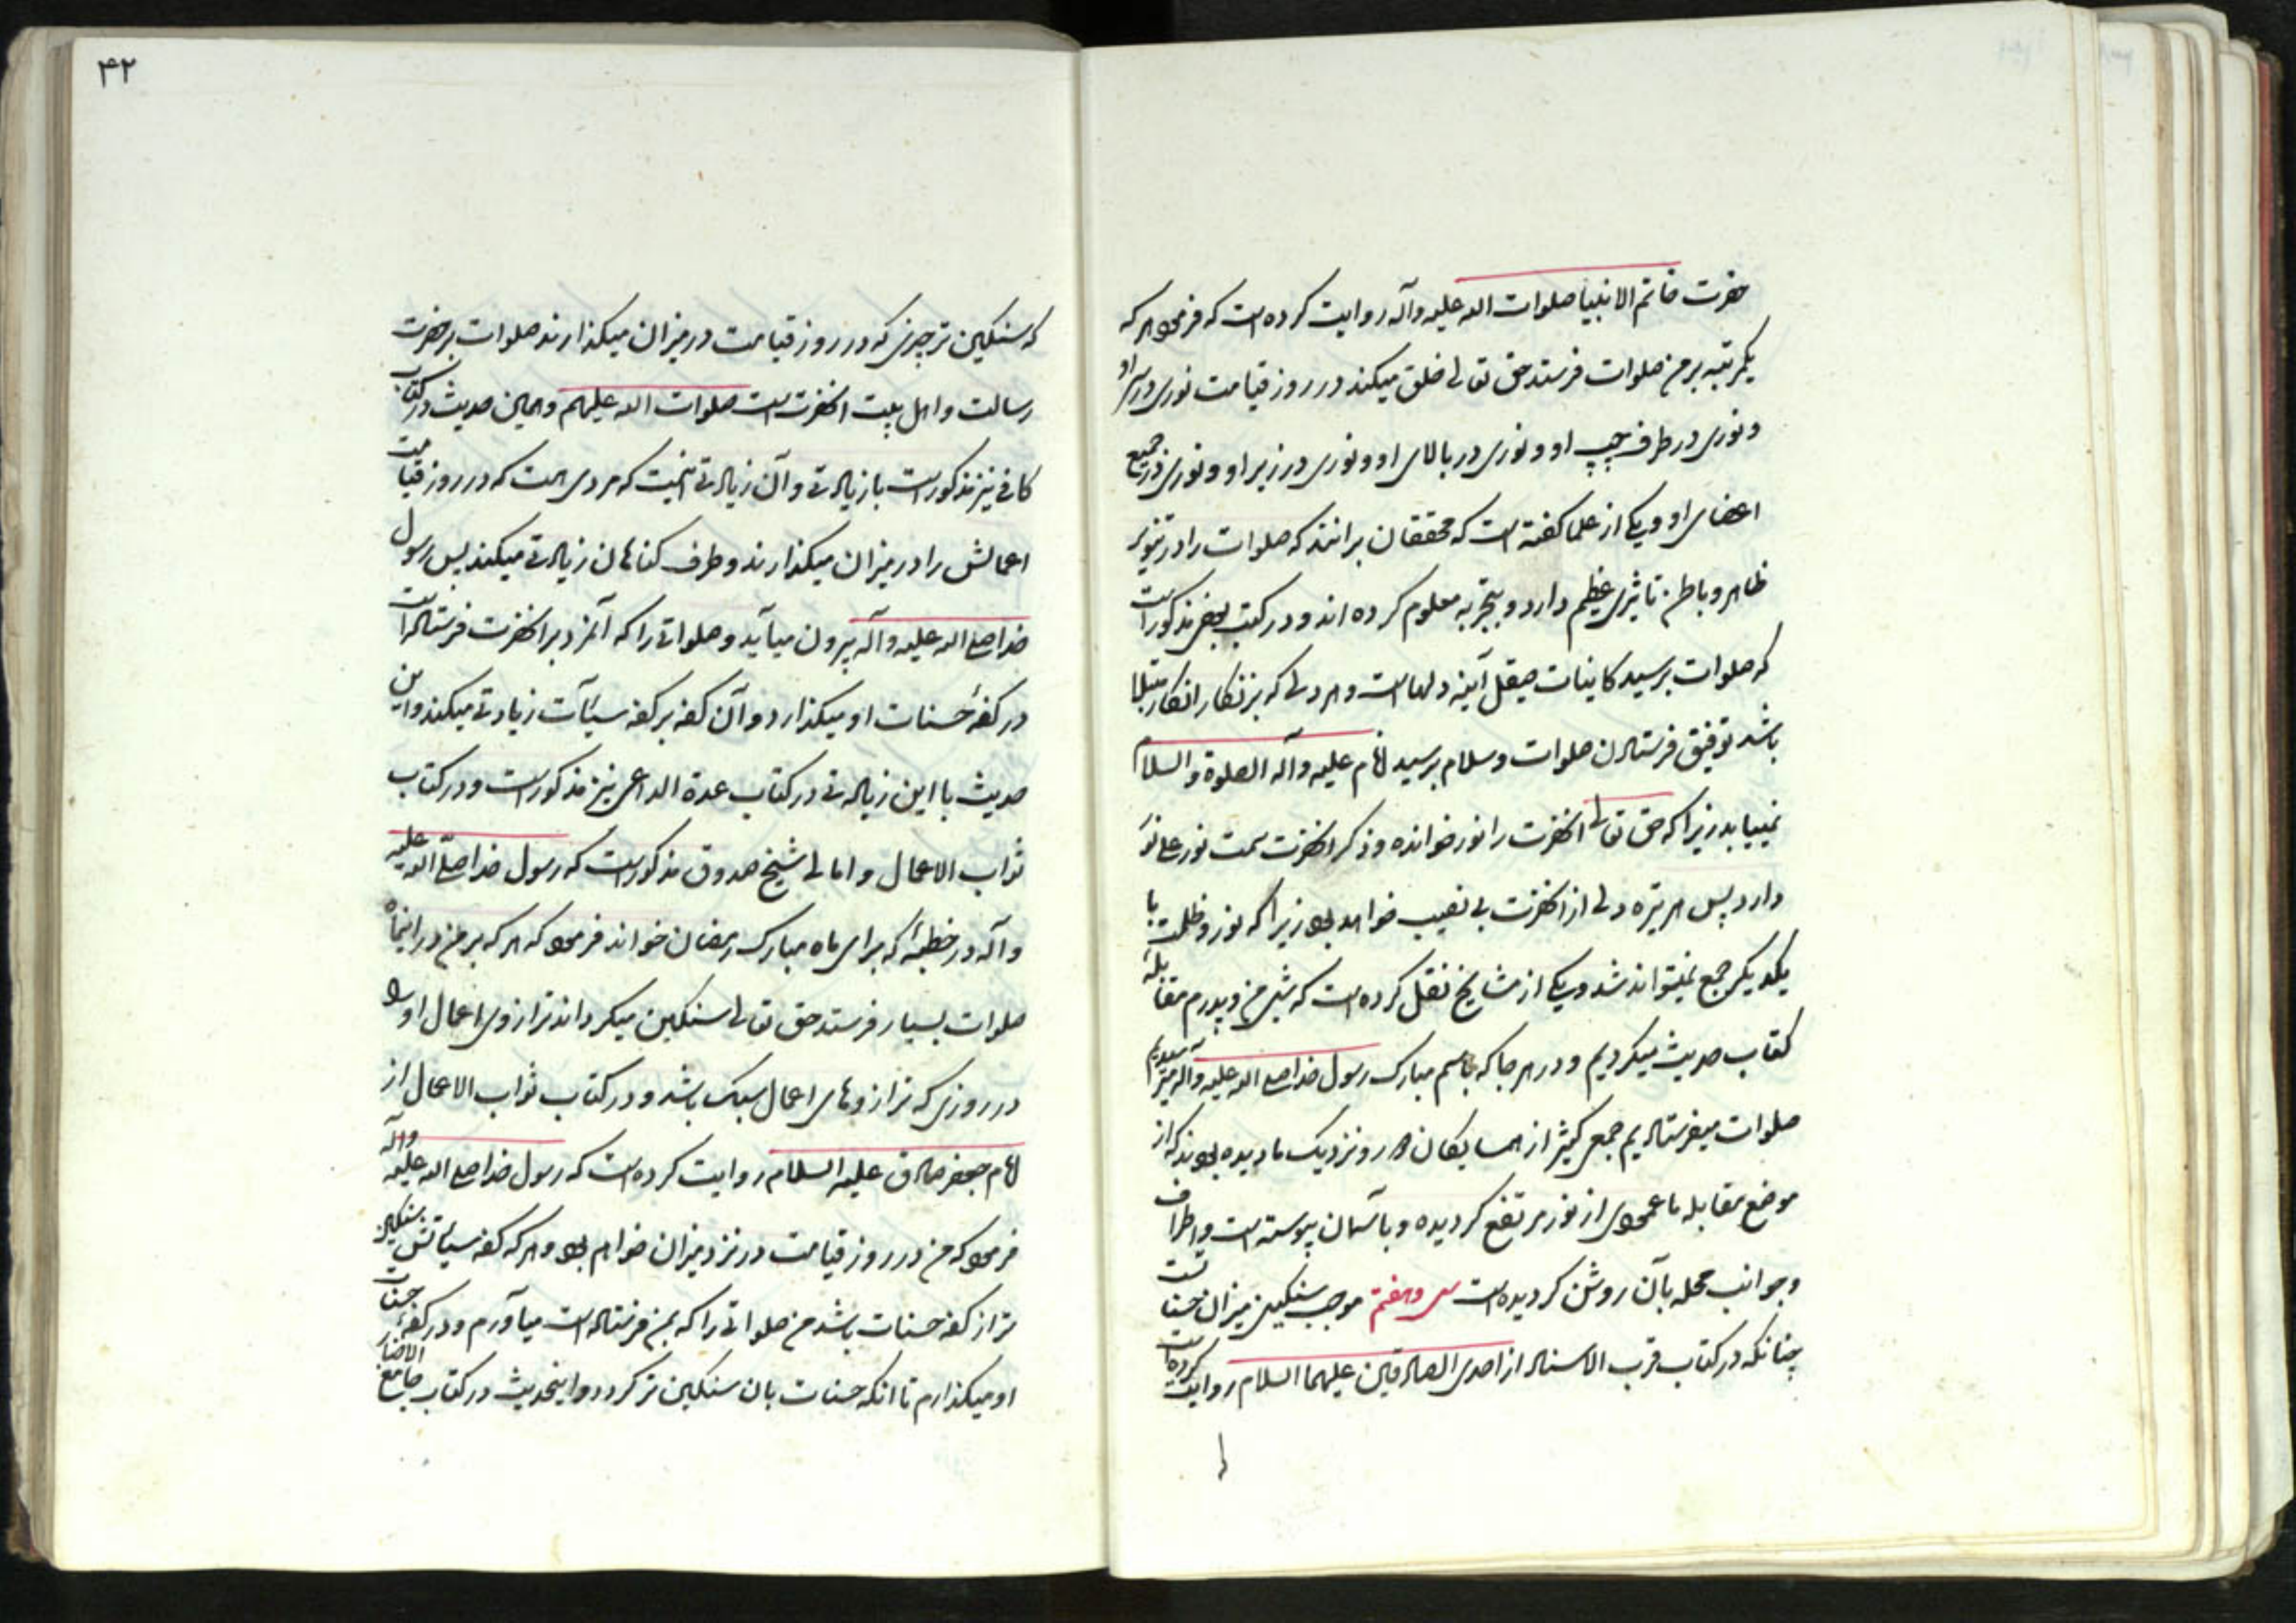 حضرت خاتم الانبیا صلوات الله علیه وآله روایت کرده است که فرمود هر که
یکمرتبه بر من صلوات فرستد حق تعالی خلق میکند در روز قیامت نوری در سر او
و نوری در طرف چپ او و نوری در بالای او و نوری در زیر او و نوری در جمیع
اعضای او و یکی از علما کفته است که محققان برانند که صلوات را در تنویر
ظاهر و باطن تاثیری عظیم دارد و بتجربه معلوم کرده اند و در کتب بعضی مذکور است
که صلوات بر سید کاینات صیقل آینه دلهاست و هر دلی که بزنکار انکار مبتلا
باشد توفیق فرستادن صلوات و سلام بر سید انام علیه وآله الصلوة والسلام
نمییابد زیرا که حق تعالی انحضرت را نور خوانده و ذکر انحضرت سمت نور علی نور
دارد پس هر تیره دلی از انحضرت بی نصیب خواهد بود زیرا که نور و ظلمت با
یکدیکر جمع نمیتواند شد و یکی از مشایخ نقل کرده است که شبی من و پدرم مقابله
کتاب حدیث میکردیم و در هر جا که باسم مبارک رسول خدا صلی الله علیه واله میرسیدیم
صلوات میفرستادیم جمع کثیر از همسایکان دور و نزدیک ما دیده بودند که از
موضع مقابله ما عمودی از نور مرتفع کردیده و بآسمان پیوسته است و اطراف
و جوانب محله بآن روشن کردیده است سی و هفتم موجب سنکینی میزان حسنات است
چنانکه در کتاب قرب الاسناد از احدی الصادقین علیهما السلام روایت کرده است
۴۲
که سنکین تر چیزی که در روز قیامت در میزان میکذارند صلوات بر حضرت
رسالت و اهل بیت انحضرت است صلوات الله علیهم و همین حدیث در کتاب
کافی نیز مذکور است با زیادتی و آن زیادتی اینست که مردی هست که در روز قیامت
اعمالش را در میزان میکذارند و طرف کناهان زیادتی میکند پس رسول
خدا صلی الله علیه وآله بیرون میآید و صلواتی را که آنمرد بر انحضرت فرستاده است
در کفه حسنات او میکذارد و آن کفه بر کفه سیئات زیادتی میکند و این
حدیث با این زیادتی در کتاب عدة الداعی نیز مذکور است و در کتاب
ثواب الاعمال و امالی شیخ صدوق مذکور است که رسول خدا صلی الله علیه
وآله در خطبه که برای ماه مبارک رمضان خواند فرمود که هر که بر من در اینماه
صلوات بسیار فرستد حق تعالی سنکین میکرداند ترازوی اعمال او را
در روزی که ترازوهای اعمال سبک باشد و در کتاب ثواب الاعمال از
امام جعفر صادق علیه السلام روایت کرده است که رسول خدا صلی الله علیه وآله
فرمود که من در روز قیامت در نزد میزان خواهم بود و هر که کفه سیئاتش سنکین
تر از کفه حسنات باشد من صلواتی را که بمن فرستاده است میآورم و در کفه حسنات
او میکذارم تا انکه حسنات بان سنکین تر کردد و اینحدیث در کتاب جامع الاخبار